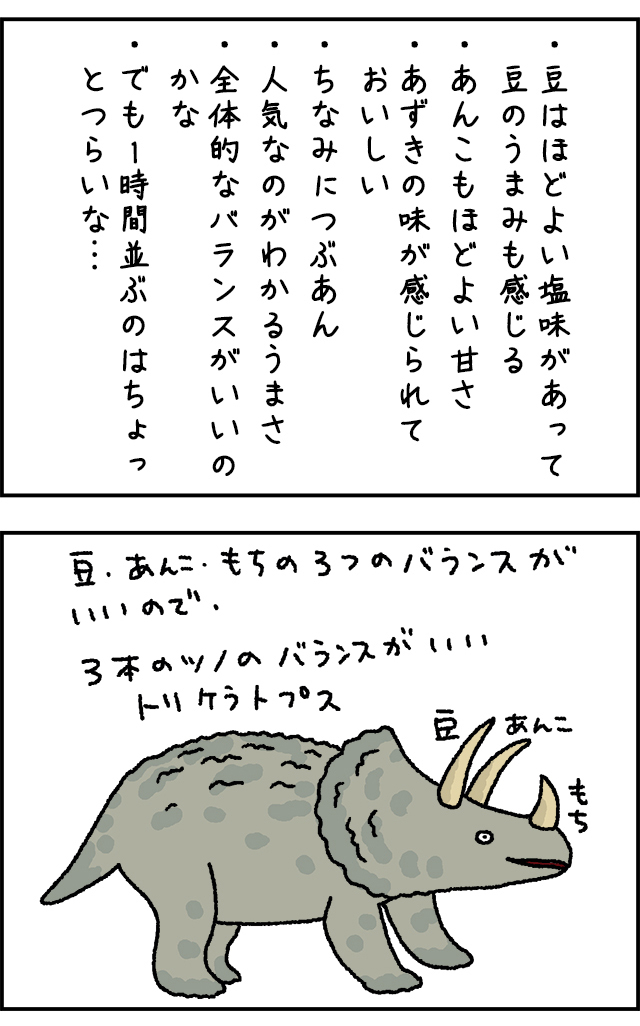 ・豆はほどよい塩味があって
豆のうまみも感じる
・あんこもほどよい甘さ
・あずきの味が感じられて
おいしい
・ちなみにつぶあん
・人気なのがわかるうまさ
・全体的なバランスがいいの
かな
・でも1時間並ぶのはちょっ
とつらいな…
豆・あんこ・もちの3つのバランスが
いいので、
3本のツノのバランスがいい
トリケラトプス
豆
あんこ
もち